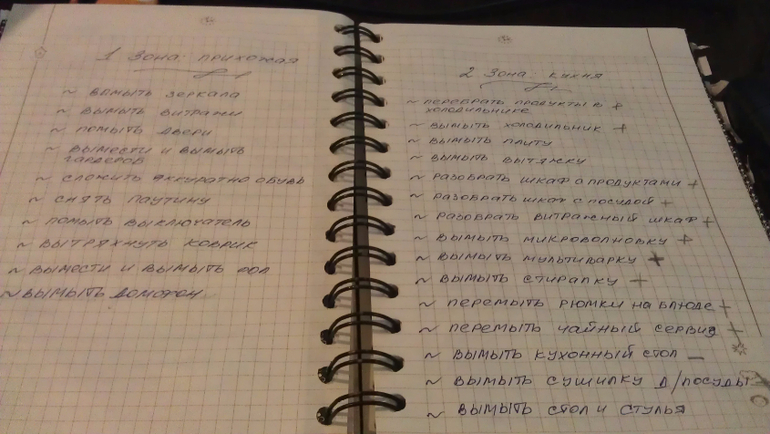 1 Зона: прихожая
~ вымыть зеркала
~ вымыть витражи
~ помыть двери
~ вымести и вымыть
гардероб
~ сложить аккуратно обувь
~ снять паутину
~ помыть выключатель
~ вытряхнуть коврик
~ вымести и вымыть пол
~ вымыть домофон
2 Зона: кухня
~ перебрать продукты в +
холодильнике
~ вымыть холодильник +
~ вымыть плиту
~ вымыть вытяжку
~ разобрать шкаф с продуктами +
~ разобрать шкаф с посудой +
~ разобрать витражный шкаф +
~ вымыть микроволновку +
~ вымыть мультиварку +
~ вымыть стиралку +
~ перемыть рюмки на блюде +
~ перемыть чайный сервиз +
~ вымыть кухонный стол —
~ вымыть сушилку д/посуды
~ вымыть стол и стулья